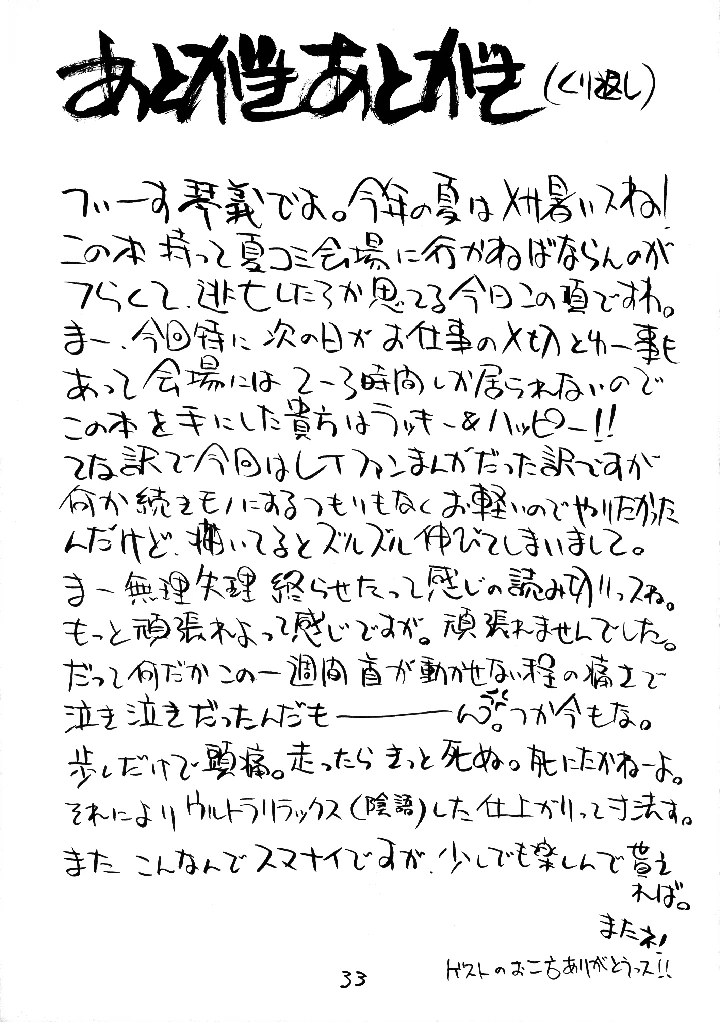 あとがきあとがき(くり返し)
つぃーす琴義でよ。今年の夏はメサ暑いスね!
この本持って夏コミ会場に行かねばならんのが
つらくて、逃亡したろか思てる今日この頃ですわ。
まー、今回特に次の日がお仕事の〆切とゆー事も
あって会場には2〜3時間しか居られないので
この本を手にした貴方はラッキー&ハッピー!!
てな訳で今回はLFファンまんがだった訳ですが
何か続きモノにするつもりもなくお軽いのでやりだかった
んだけど、描いてるとズルズル伸びてしまいまして。
まー無理矢理終らせたって感じの読み切りっスね。
もっと頑張れよって感じですが。頑張れませんでした。
だって何だかこの一週間首が動かせない程の痛さで
泣き泣きだったんだも――――んっ。つか今もな。
歩くだけで頭痛。走ったらきっと死ぬ。死にたかねーよ。
それによりウルトラリラックス(陰語)した仕上がりって寸法す。
またこんなんでスマナイですが、少しでも楽しんで貰え
れば。
またネ!
ゲストのお二方ありがとうっス!!
33